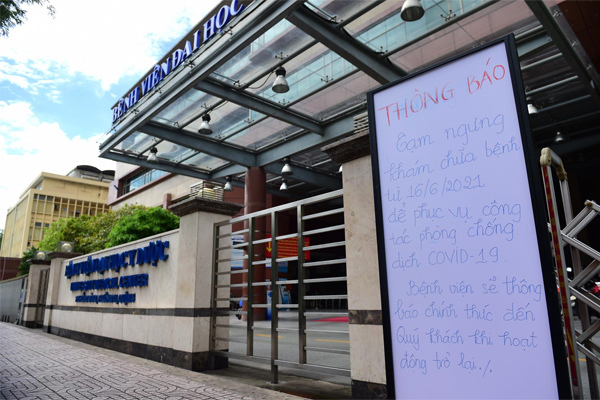 BỆNH VIỆN ĐẠI HỌC
BỆNH VIỆN ĐẠI HỌC Y DƯỢC
THÔNG BÁO
Tạm ngưng
khám chữa bệnh
từ 16/6/2021
để phục vụ công
tác phòng chống
dịch COVID-19.
Bệnh viện sẽ thông
báo chính thức đến
Quý khách khi hoạt
động trở lại./.